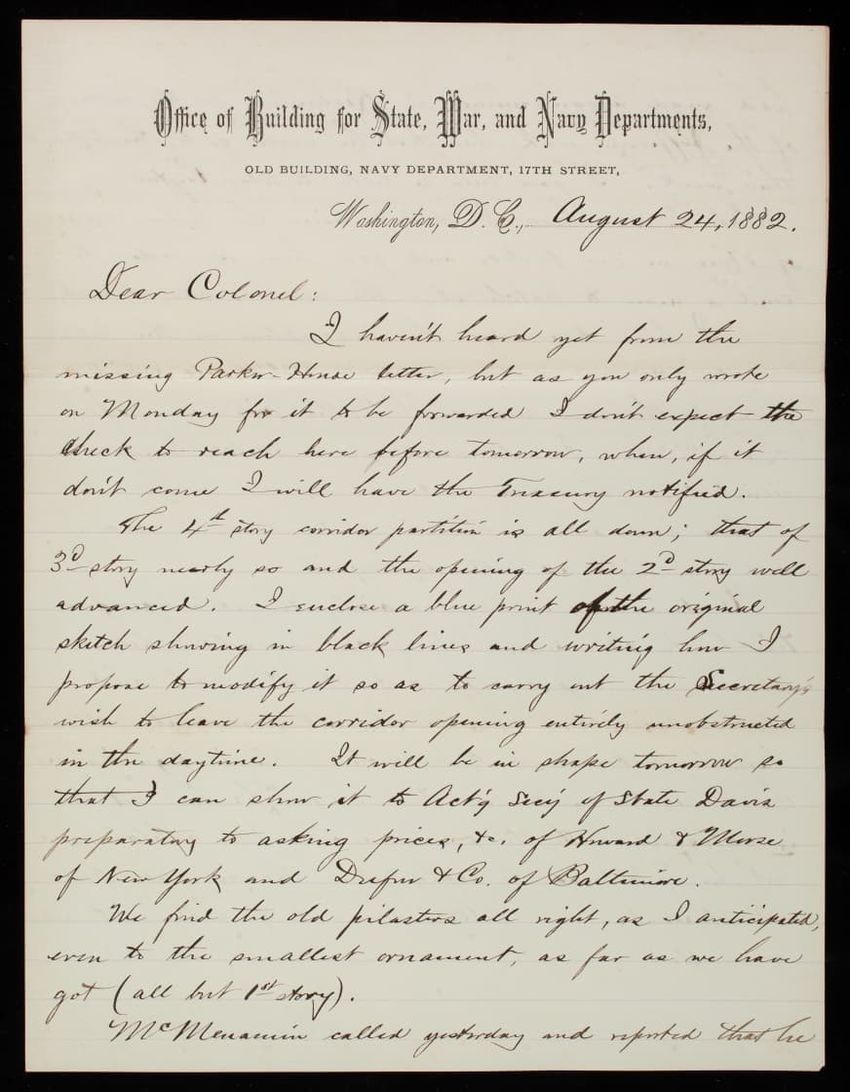 Office of Building for State, War, and Navy Departments,
OLD BUILDING, NAVY DEPARTMENT, 17TH STREET,
Washington, D. C., August 24, 1882.
Dear Colonel:
I haven't heard yet from the
missing Parker-House letter, but as you only wrote
on Monday for it to be forwarded I don't expect the
check to reach here before tomorrow, when, if it
don't come I will have the Treasury notified.
The 4th story corridor partition is all down; that of
3d story nearly so and the opening of the 2d story well
advanced. I enclose a blue print of the original
sketch showing in black lines and writing how I
propose to modify it so as to carry out the Secretary's
wish to leave the corridor opening entirely unobstructed
in the daytime. It will be in shape tomorrow so
that I can show it to Act'g Sec'y of State Davis
preparatory to asking prices, &c. of Howard & Morse
of New York and Dufur & Co. of Baltimore.
We find the old pilasters all right, as I anticipated,
even to the smallest ornament, as far as we have
got (all but 1st story).
McMenamin called yesterday and reported that he